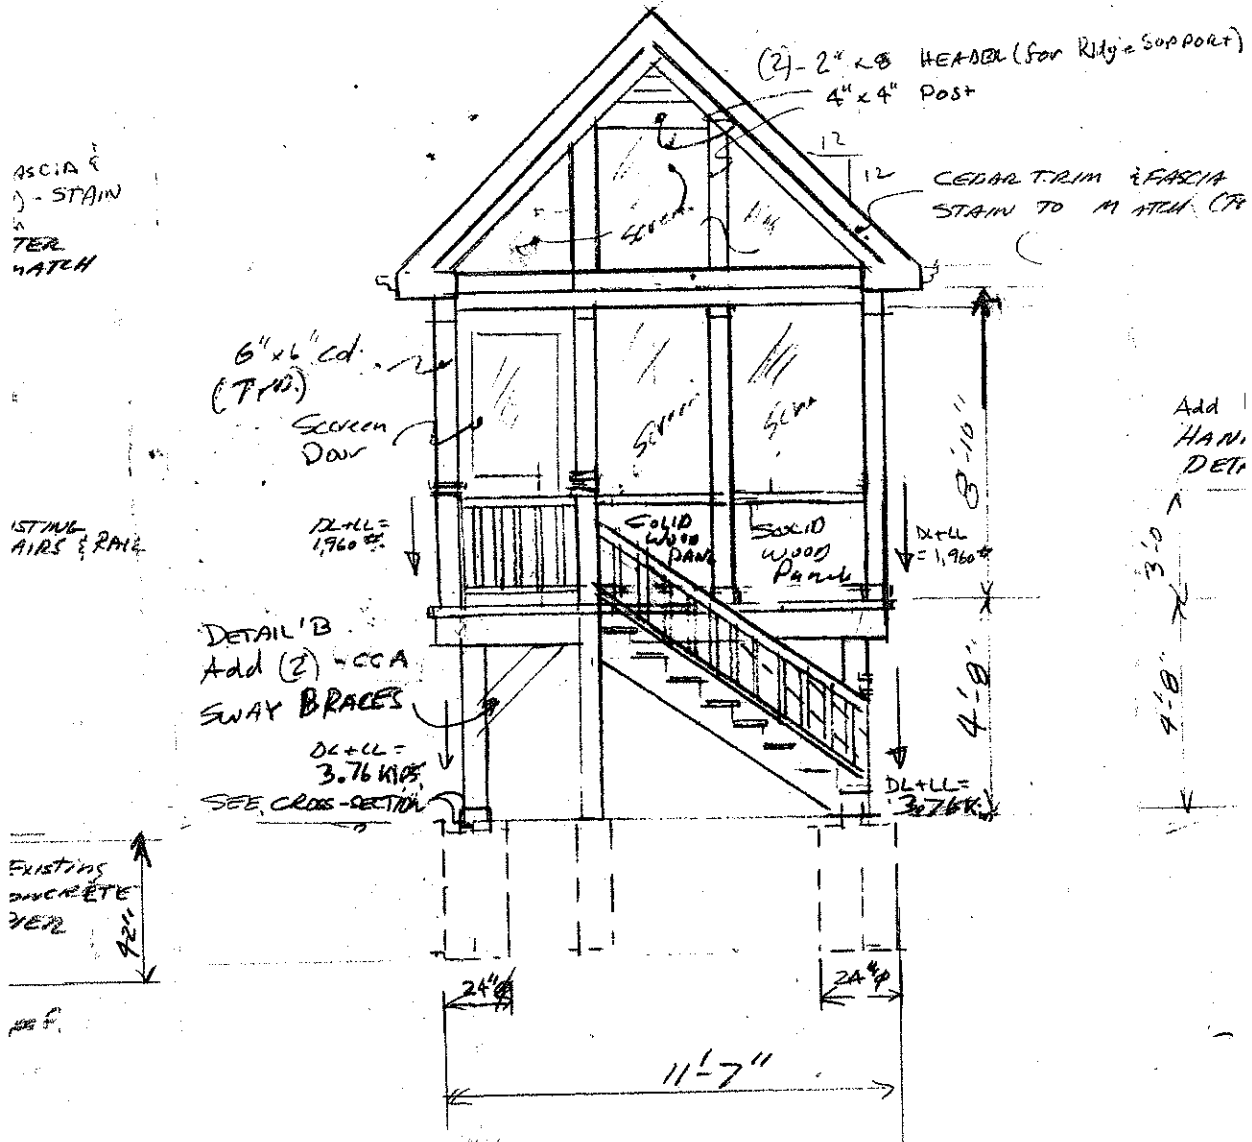 (2)-2" x 8 HEADER (for Ridge SUPPORT)
4" x 4" Post
12
12
CEDAR TRIM & FASCIA
STAIN TO MATCH
ASCIA &
- STAIN
TER
MATCH
6" x 6" Col.
(TYP.)
Screen
Door
Screen
Screen
Screen
8'-10"
Add
HAN
DETA
ISTING
AIRS & RAIL
DL+LL=
1,960#
SOLID
WOOD
PANL
SOLID
WOOD
Panel
DL+LL
= 1,960#
3'-0
DETAIL 'B
Add (2) - CCA
SWAY BRACES
4'-8"
4'-8"
DL+LL=
3.76 KIPS
SEE CROSS-SECTION
DL+LL=
3.76K
Existing
ONCRETE
IER
42"
24"φ
24"φ
11'-7"